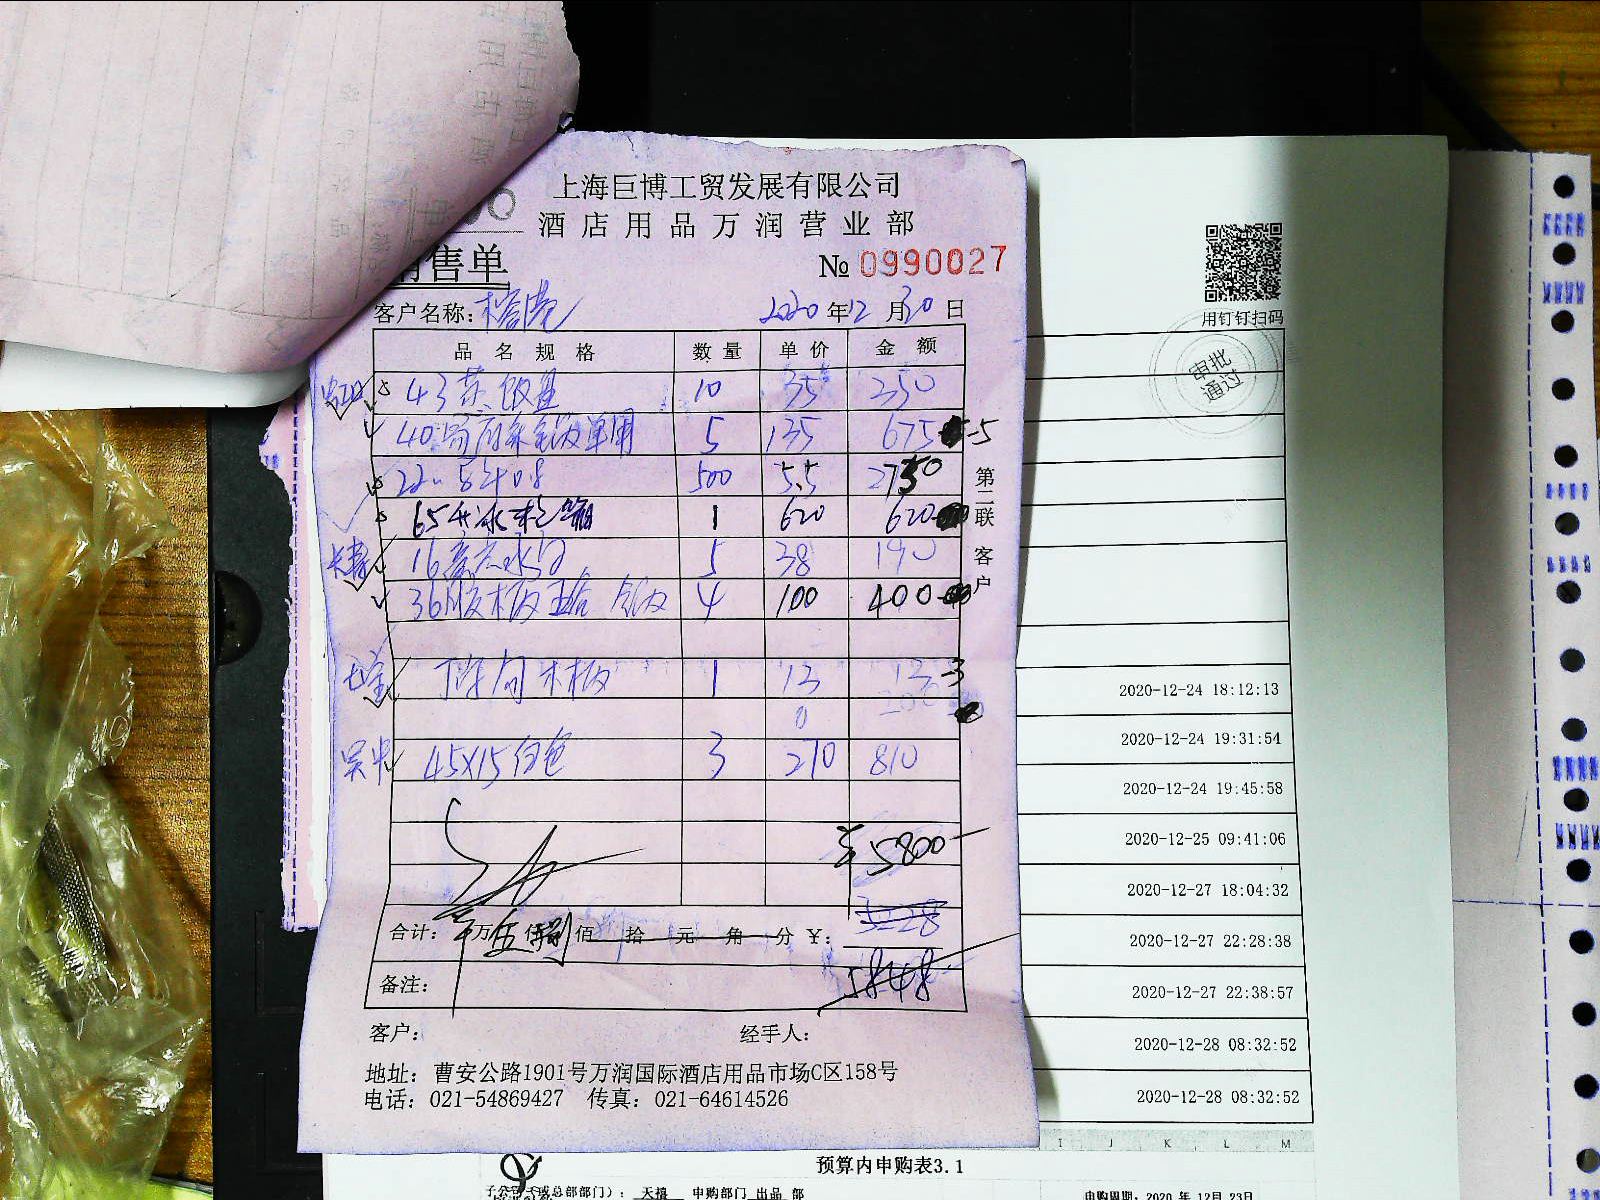 上海巨博工贸发展有限公司
酒店用品万润营业部
销售单
№ 0990027
客户名称:
2020 年 12 月 30 日
品名规格 数量 单价 金额
10 35 350
5 135 675 -5
500 5.5 2750
65升冰 箱 1 620 620
16 5 38 190
36 木板 4 100 400
木板 1 13 13 -3
吴中 45X15白色 3 270 810
¥5800-
3228
合计: 万 伍 仟 捌 佰 拾 元 角 分 ¥:
5848
备注:
第二联 客户
客户: 经手人:
地址: 曹安公路1901号万润国际酒店用品市场C区158号
电话: 021-54869427 传真: 021-64614526
用钉钉扫码
审批
通过
2020-12-24 18:12:13
2020-12-24 19:31:54
2020-12-24 19:45:58
2020-12-25 09:41:06
2020-12-27 18:04:32
2020-12-27 22:28:38
2020-12-27 22:38:57
2020-12-28 08:32:52
2020-12-28 08:32:52
I J K L M
预算内申购表3.1
子公司(或总部部门): 天禧 申购部门 出品 部 申购周期: 2020 年 12月 23日